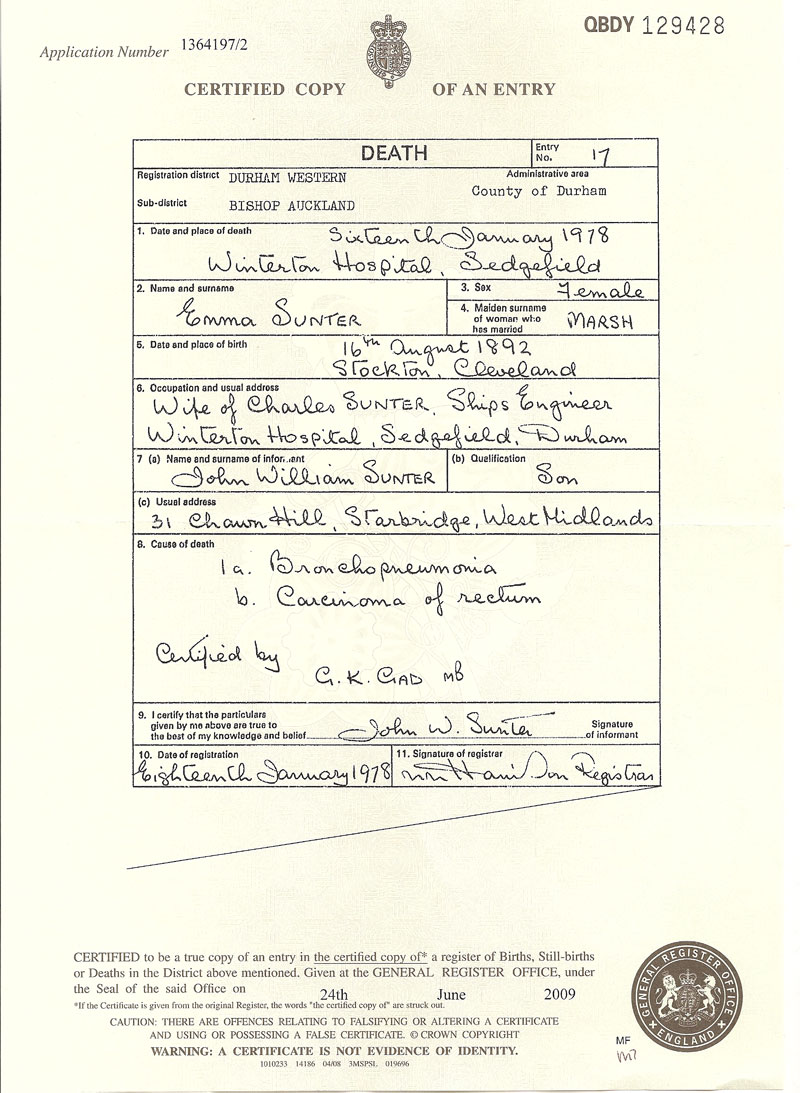 QBDY 129428
Application Number 1364197/2
CERTIFIED COPY OF AN ENTRY
DEATH
Entry No. 17
Registration district DURHAM WESTERN
Administrative area
County of Durham
Sub-district BISHOP AUCKLAND
1. Date and place of death Sixteenth January 1978
Winterton Hospital, Sedgefield
2. Name and surname
Emma SUNTER
3. Sex Female
4. Maiden surname
of woman who
has married MARSH
5. Date and place of birth 16th August 1892
Stockton, Cleveland
6. Occupation and usual address
Wife of Charles SUNTER, Ships Engineer
Winterton Hospital, Sedgefield, Durham
7 (a) Name and surname of informant
John William SUNTER
(b) Qualification
Son
(c) Usual address
31 Chawn Hill, Starbridge, West Midlands
8. Cause of death
1a. Bronchopneumonia
b. Carcinoma of rectum
Certified by
G.K. GAD MB
9. I certify that the particulars
given by me above are true to
the best of my knowledge and belief John W. Sunter Signature
of informant
10. Date of registration
Eighteenth January 1978
11. Signature of registrar
Registrar
CERTIFIED to be a true copy of an entry in the certified copy of* a register of Births, Still-births
or Deaths in the District above mentioned. Given at the GENERAL REGISTER OFFICE, under
the Seal of the said Office on 24th June 2009
*If the Certificate is given from the original Register, the words "the certified copy of" are struck out.
CAUTION: THERE ARE OFFENCES RELATING TO FALSIFYING OR ALTERING A CERTIFICATE
AND USING OR POSSESSING A FALSE CERTIFICATE. © CROWN COPYRIGHT
WARNING: A CERTIFICATE IS NOT EVIDENCE OF IDENTITY.
1010233 14186 04/08 3MSPSL 019696
GENERAL REGISTER OFFICE
ENGLAND
MF